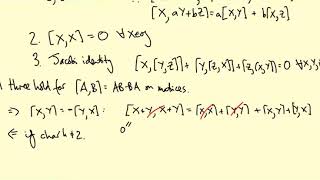 [X, aY+bZ] = a[X,Y] + b[X,Z]
2. [X,X] = 0 ∀X∈g
3. Jacobi identity [X,[Y,Z]]+[Y,[Z,X]]+[Z,[X,Y]]=0 ∀X,Y
three hold for [A,B] = AB-BA on matrices.
⇒ [X,Y] = -[Y,X] : [X+Y, X+Y] = [X,X]+[Y,Y] + [X,Y]+[Y,X]
⇐ if char k≠2. 0"